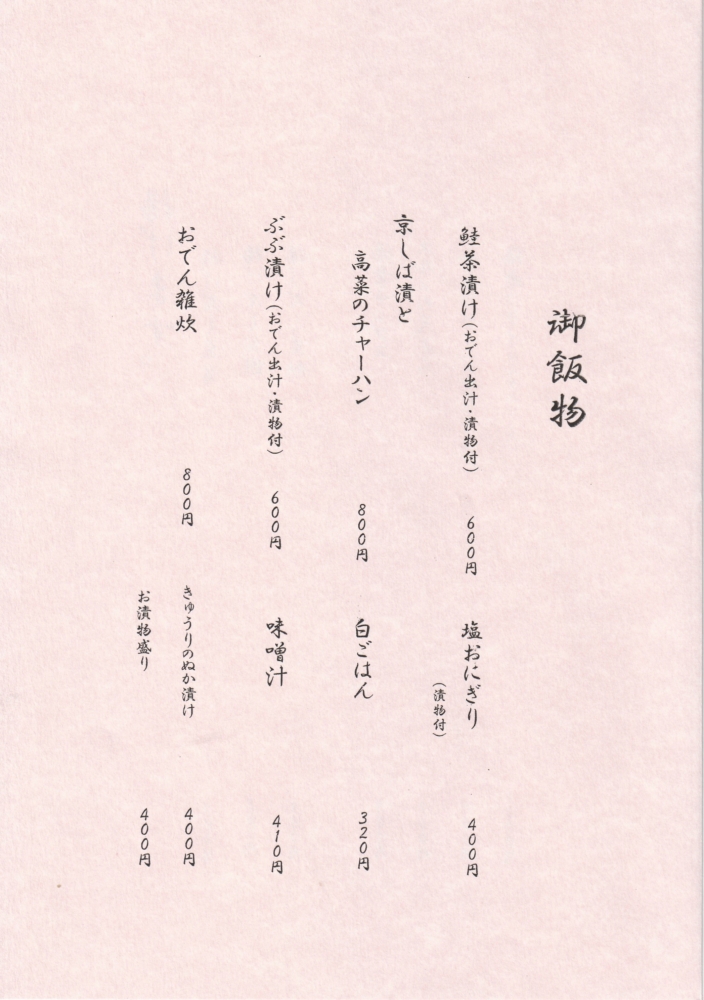 御飯物
鮭茶漬け（おでん出汁・漬物付） 600円
京しば漬と
高菜のチャーハン 800円
ぶぶ漬け（おでん出汁・漬物付） 600円
おでん雑炊 800円
塩おにぎり 400円
（漬物付）
白ごはん 320円
味噌汁 410円
きゅうりのぬか漬け 400円
お漬物盛り 400円